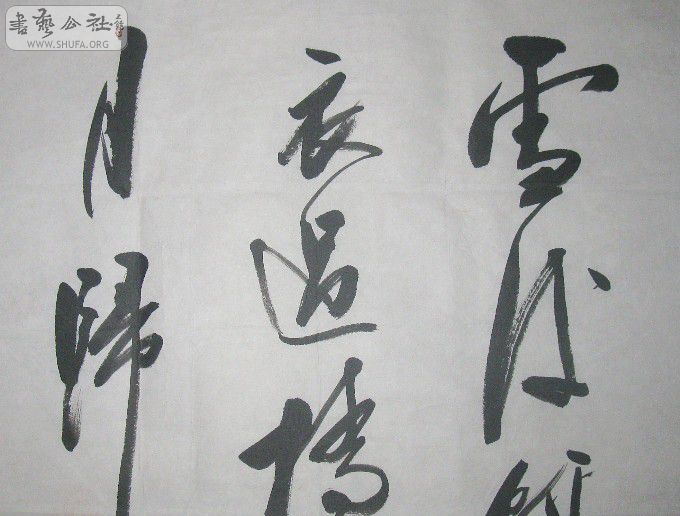 書藝公社
WWW.SHUFA.ORG
雪
衣過橋
月歸